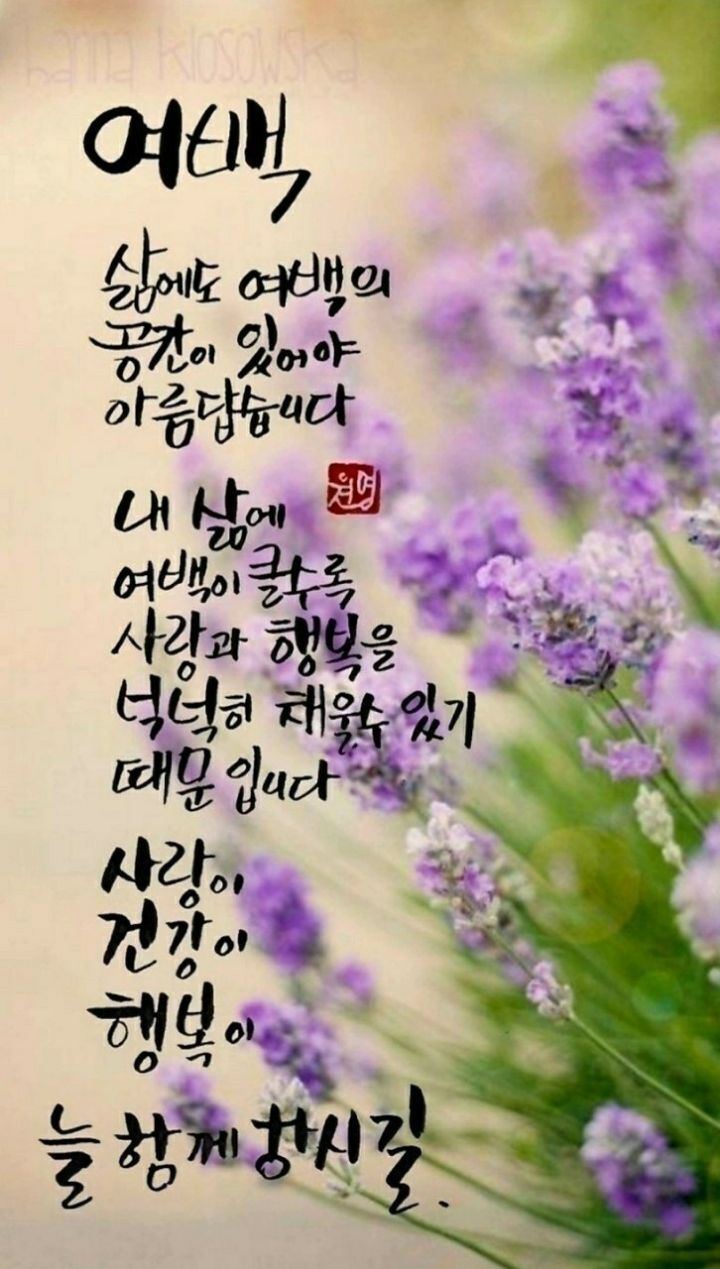 hanna klosowska
여백
삶에도 여백의
공간이 있어야
아름답습니다
내 삶에
여백이 클수록
사랑과 행복을
넉넉히 채울수 있기
때문입니다
사랑이
건강이
행복이
늘 함께 하시길.